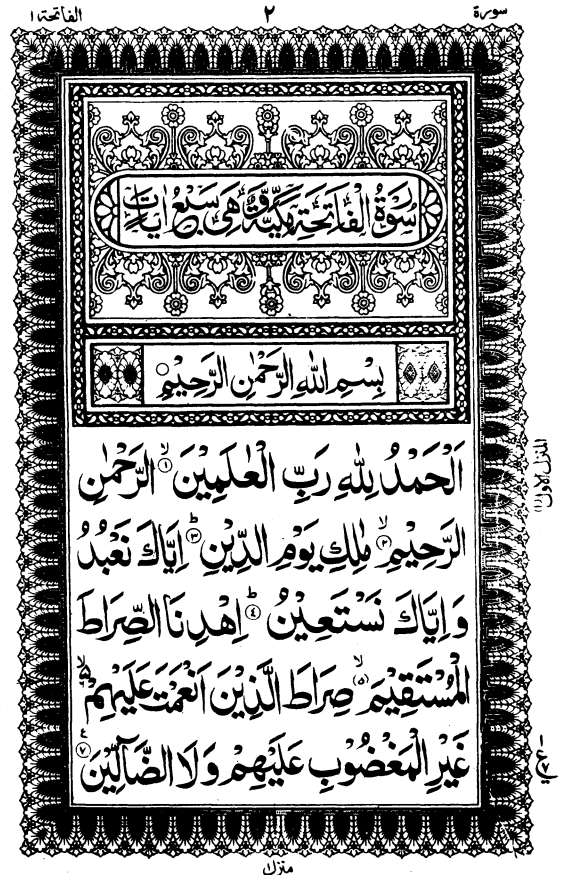 سورة ٢ الفاتحة ١
سُوْرَةُ الْفَاتِحَةِ مَكِّيَّةٌ وَّهِىَ سَبْعُ اٰيَاتٍ
بِسْمِ اللّٰهِ الرَّحْمٰنِ الرَّحِيْمِ ○
اَلْحَمْدُ لِلّٰهِ رَبِّ الْعٰلَمِيْنَ ۙ﴿۱﴾ الرَّحْمٰنِ
الرَّحِيْمِ ۙ﴿۲﴾ مٰلِكِ يَوْمِ الدِّيْنِ ؕ﴿۳﴾ اِيَّاكَ نَعْبُدُ
وَ اِيَّاكَ نَسْتَعِيْنُ ؕ﴿۴﴾ اِهْدِنَا الصِّرَاطَ
الْمُسْتَقِيْمَ ۙ﴿۵﴾ صِرَاطَ الَّذِيْنَ اَنْعَمْتَ عَلَيْهِمْ ۙ﴿۶﴾
غَيْرِ الْمَغْضُوْبِ عَلَيْهِمْ وَ لَا الضَّآلِّيْنَ ﴿۷﴾
المنزل الاول (١)
منزل ١